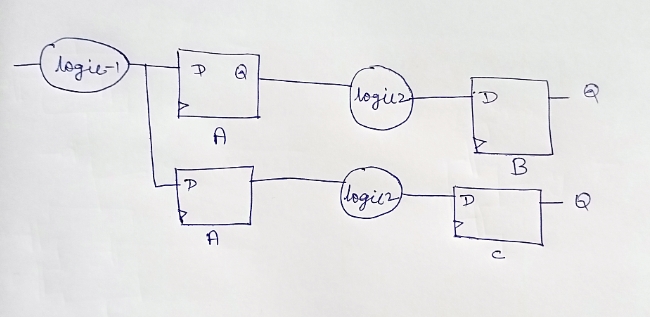 logic-1
D Q
A
logic2
D
Q
B
D
A
logic2
D
Q
C